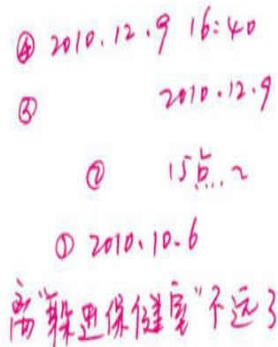 ④ 2010.12.9 16:40
③ 2010.12.9
② 15点.~
① 2010.10.6
离"躲进保健室"不远了